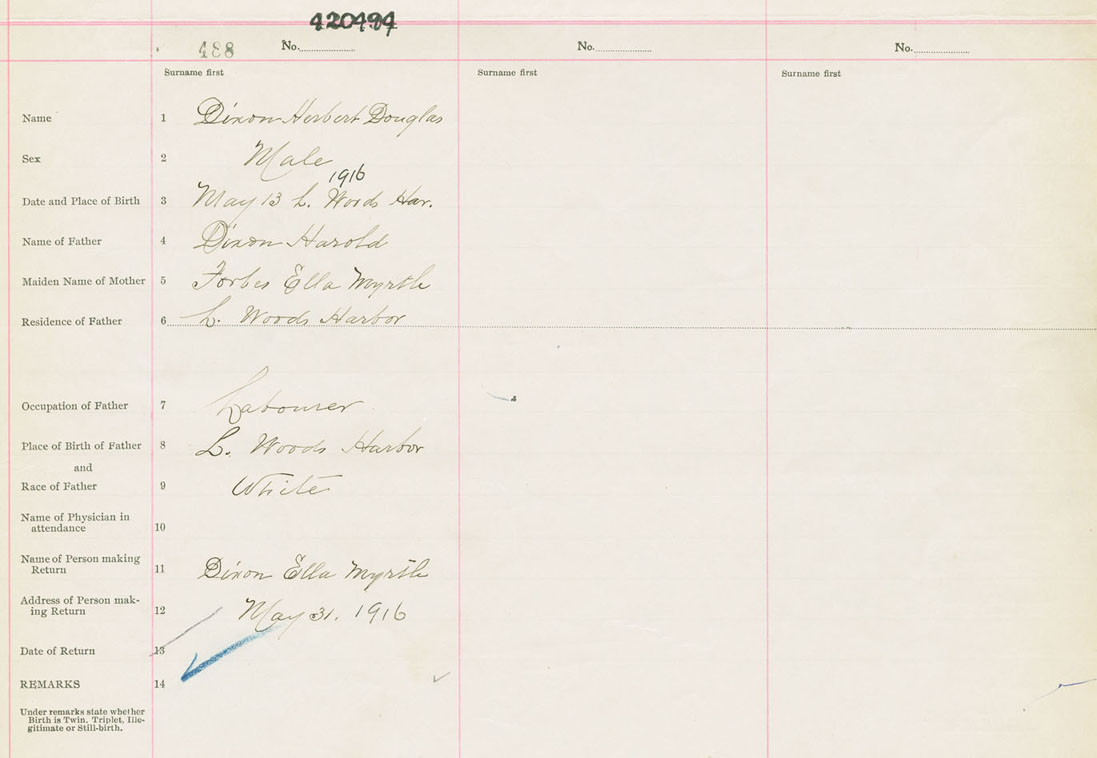 420494
488 No. No. No.
Surname first Surname first Surname first
Name 1 Dixon Herbert Douglas
Sex 2 Male
1916
Date and Place of Birth 3 May 13 L. Woods Har.
Name of Father 4 Dixon Harold
Maiden Name of Mother 5 Forbes Ella Myrtle
Residence of Father 6 L. Woods Harbor
Occupation of Father 7 Labourer
Place of Birth of Father 8 L. Woods Harbor
and
Race of Father 9 White
Name of Physician in
attendance 10
Name of Person making
Return 11 Dixon Ella Myrtle
Address of Person mak-
ing Return 12 May 31. 1916
Date of Return 13
REMARKS 14
Under remarks state whether
Birth is Twin. Triplet, Ille-
gitimate or Still-birth.